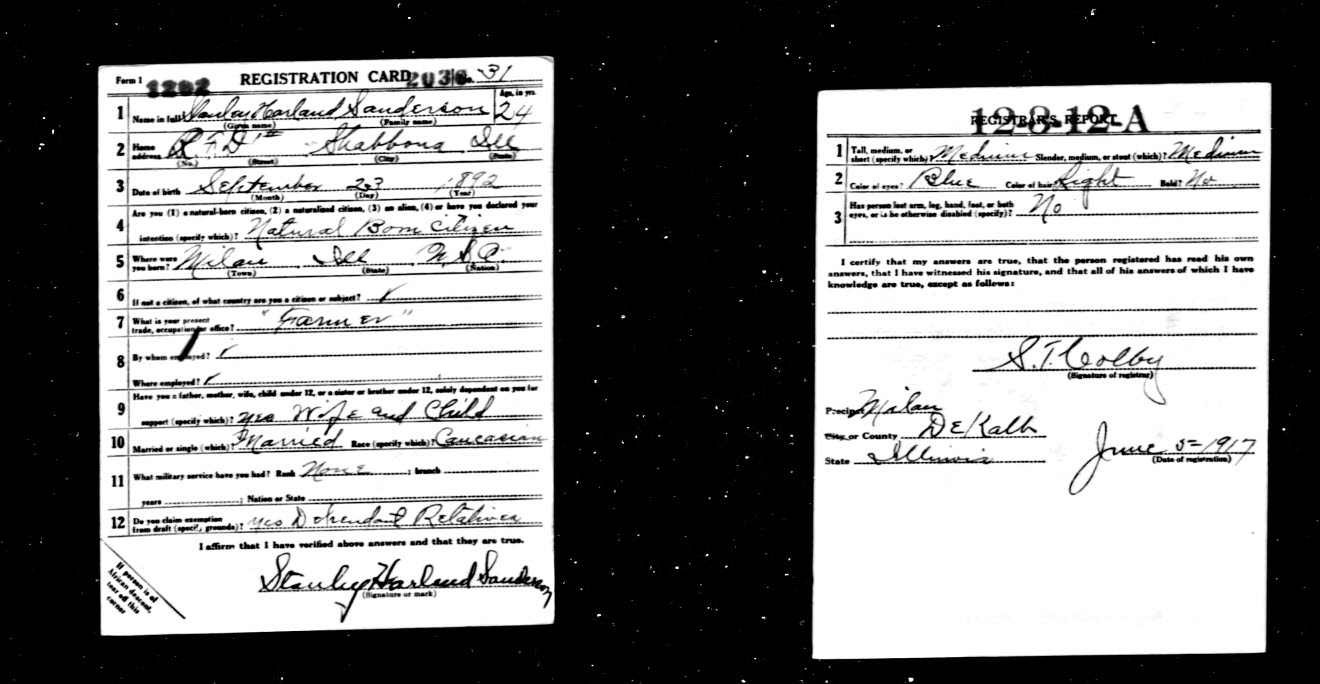 Form 1 1202 REGISTRATION CARD 2036 No. 31
1 Name in full Stanley Harland Sanderson Age, in yrs. 24
(Given name) (Family name)
2 Home address R F D 1 Shabbona Ill
(No.) (Street) (City) (State)
3 Date of birth September 23 1892
(Month) (Day) (Year)
4 Are you (1) a natural-born citizen, (2) a naturalized citizen, (3) an alien, (4) or have you declared your
intention (specify which)? Natural Born Citizen
5 Where were you born? Milan Ill U.S.A.
(Town) (State) (Nation)
6 If not a citizen, of what country are you a citizen or subject? ✓
7 What is your present
trade, occupation or office? "Farmer"
8 By whom employed? ✓
Where employed? ✓
9 Have you a father, mother, wife, child under 12, or a sister or brother under 12, solely dependent on you for
support (specify which)? yes Wife and Child
10 Married or single (which)? Married Race (specify which)? Caucasian
11 What military service have you had? Rank None ; branch
years ; Nation or State
12 Do you claim exemption
from draft (specify grounds)? yes Dependant Relatives
I affirm that I have verified above answers and that they are true.
Stanley Harland Sanderson
(Signature or mark)
If person is of
African descent,
tear off this
corner
12-8-12-A
REGISTRAR'S REPORT
1 Tall, medium, or
short (specify which)? Medium Slender, medium, or stout (which)? Medium
2 Color of eyes? Blue Color of hair? Light Bald? No
3 Has person lost arm, leg, hand, foot, or both
eyes, or is he otherwise disabled (specify)? No
I certify that my answers are true, that the person registered has read his own
answers, that I have witnessed his signature, and that all of his answers of which I have
knowledge are true, except as follows:
S. T. Colby
(Signature of registrar)
Precinct Milan
City or County DeKalb
State Illinois
June 5 - 1917
(Date of registration)